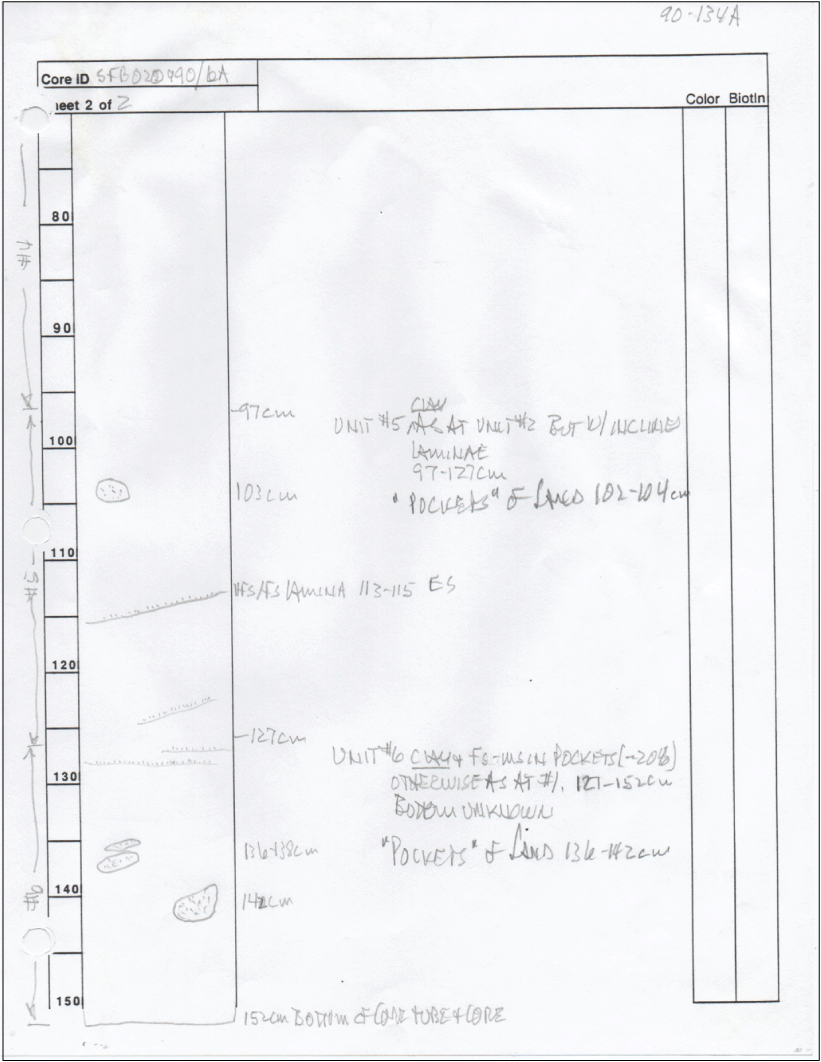 90-134A
Core ID SFB020790/6A
eet 2 of 2
Color Biotin
80
#4
90
97cm
CLAY
UNIT #5 AS AT UNIT #2 BUT W/ INCLINED
100
LAMINAE
97-127cm
103cm
"POCKETS" OF SAND 102-104cm
110
#5
VFS/FS LAMINA 113-115 ES
120
127cm
UNIT #6 CLAY + FS-MS IN POCKETS (~20%)
130
OTHERWISE AS AT #1, 127-152cm
BOTTOM UNKNOWN
136-138cm
"POCKETS" OF SAND 136-142cm
140
#6
142cm
150
152cm BOTTOM OF CORE TUBE + CORE